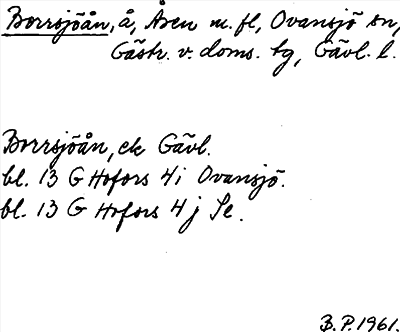 Borrsjöån, å, Åsen m. fl, Ovansjö sn,
Gästr. v. doms. tg, Gävl. l.
Borrsjöån, ek Gävl.
bl. 13 G Hofors 4i Ovansjö.
bl. 13 G Hofors 4j Se.
B. P. 1961.